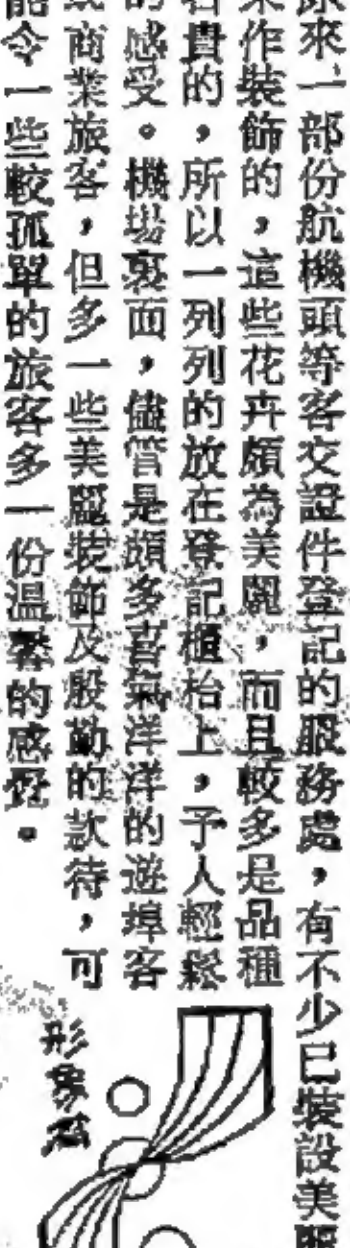 原來一部份航機頭等客交證件登記的服務處，有不少已裝設美
來作裝飾的，這些花卉頗為美麗，而且較多是品種
名貴的，所以一列列的放在登記櫃枱上，予人輕鬆
的感受。機場裏面，儘管是頗多喜氣洋洋的遊埠客
或商業旅客，但多一些美麗裝飾及殷勤的款待，可
能令一些較孤單的旅客多一份溫馨的感覺。
形象